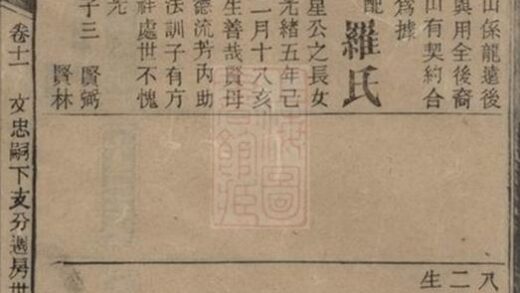 山係龍遠後
與用全後裔
山有契約合
爲據
配羅氏
星公之長女
光緒五年己
一月十八亥
生善哉賢母
德流芳內助
法訓子有方
祥處世不愧
子三 賢弼
賢林
卷十一 文忠嗣下支分遇房世
八
二
生